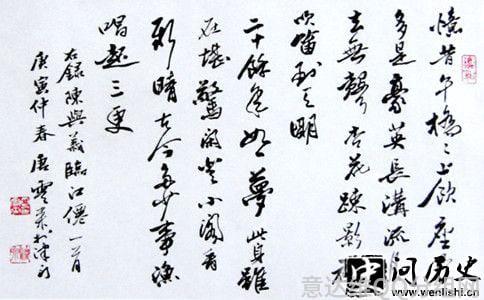 憶昔午橋〻上飲座
多是豪英長溝流
去無聲杏花疎影
吹笛到天明
二十餘年如夢此身雖
在堪驚閑登小閣看
新晴古今多少事漁
唱起三更
右録陳與義臨江僊一首
庚寅仲春唐雲来於津
问历史
www.wenlishi.cn